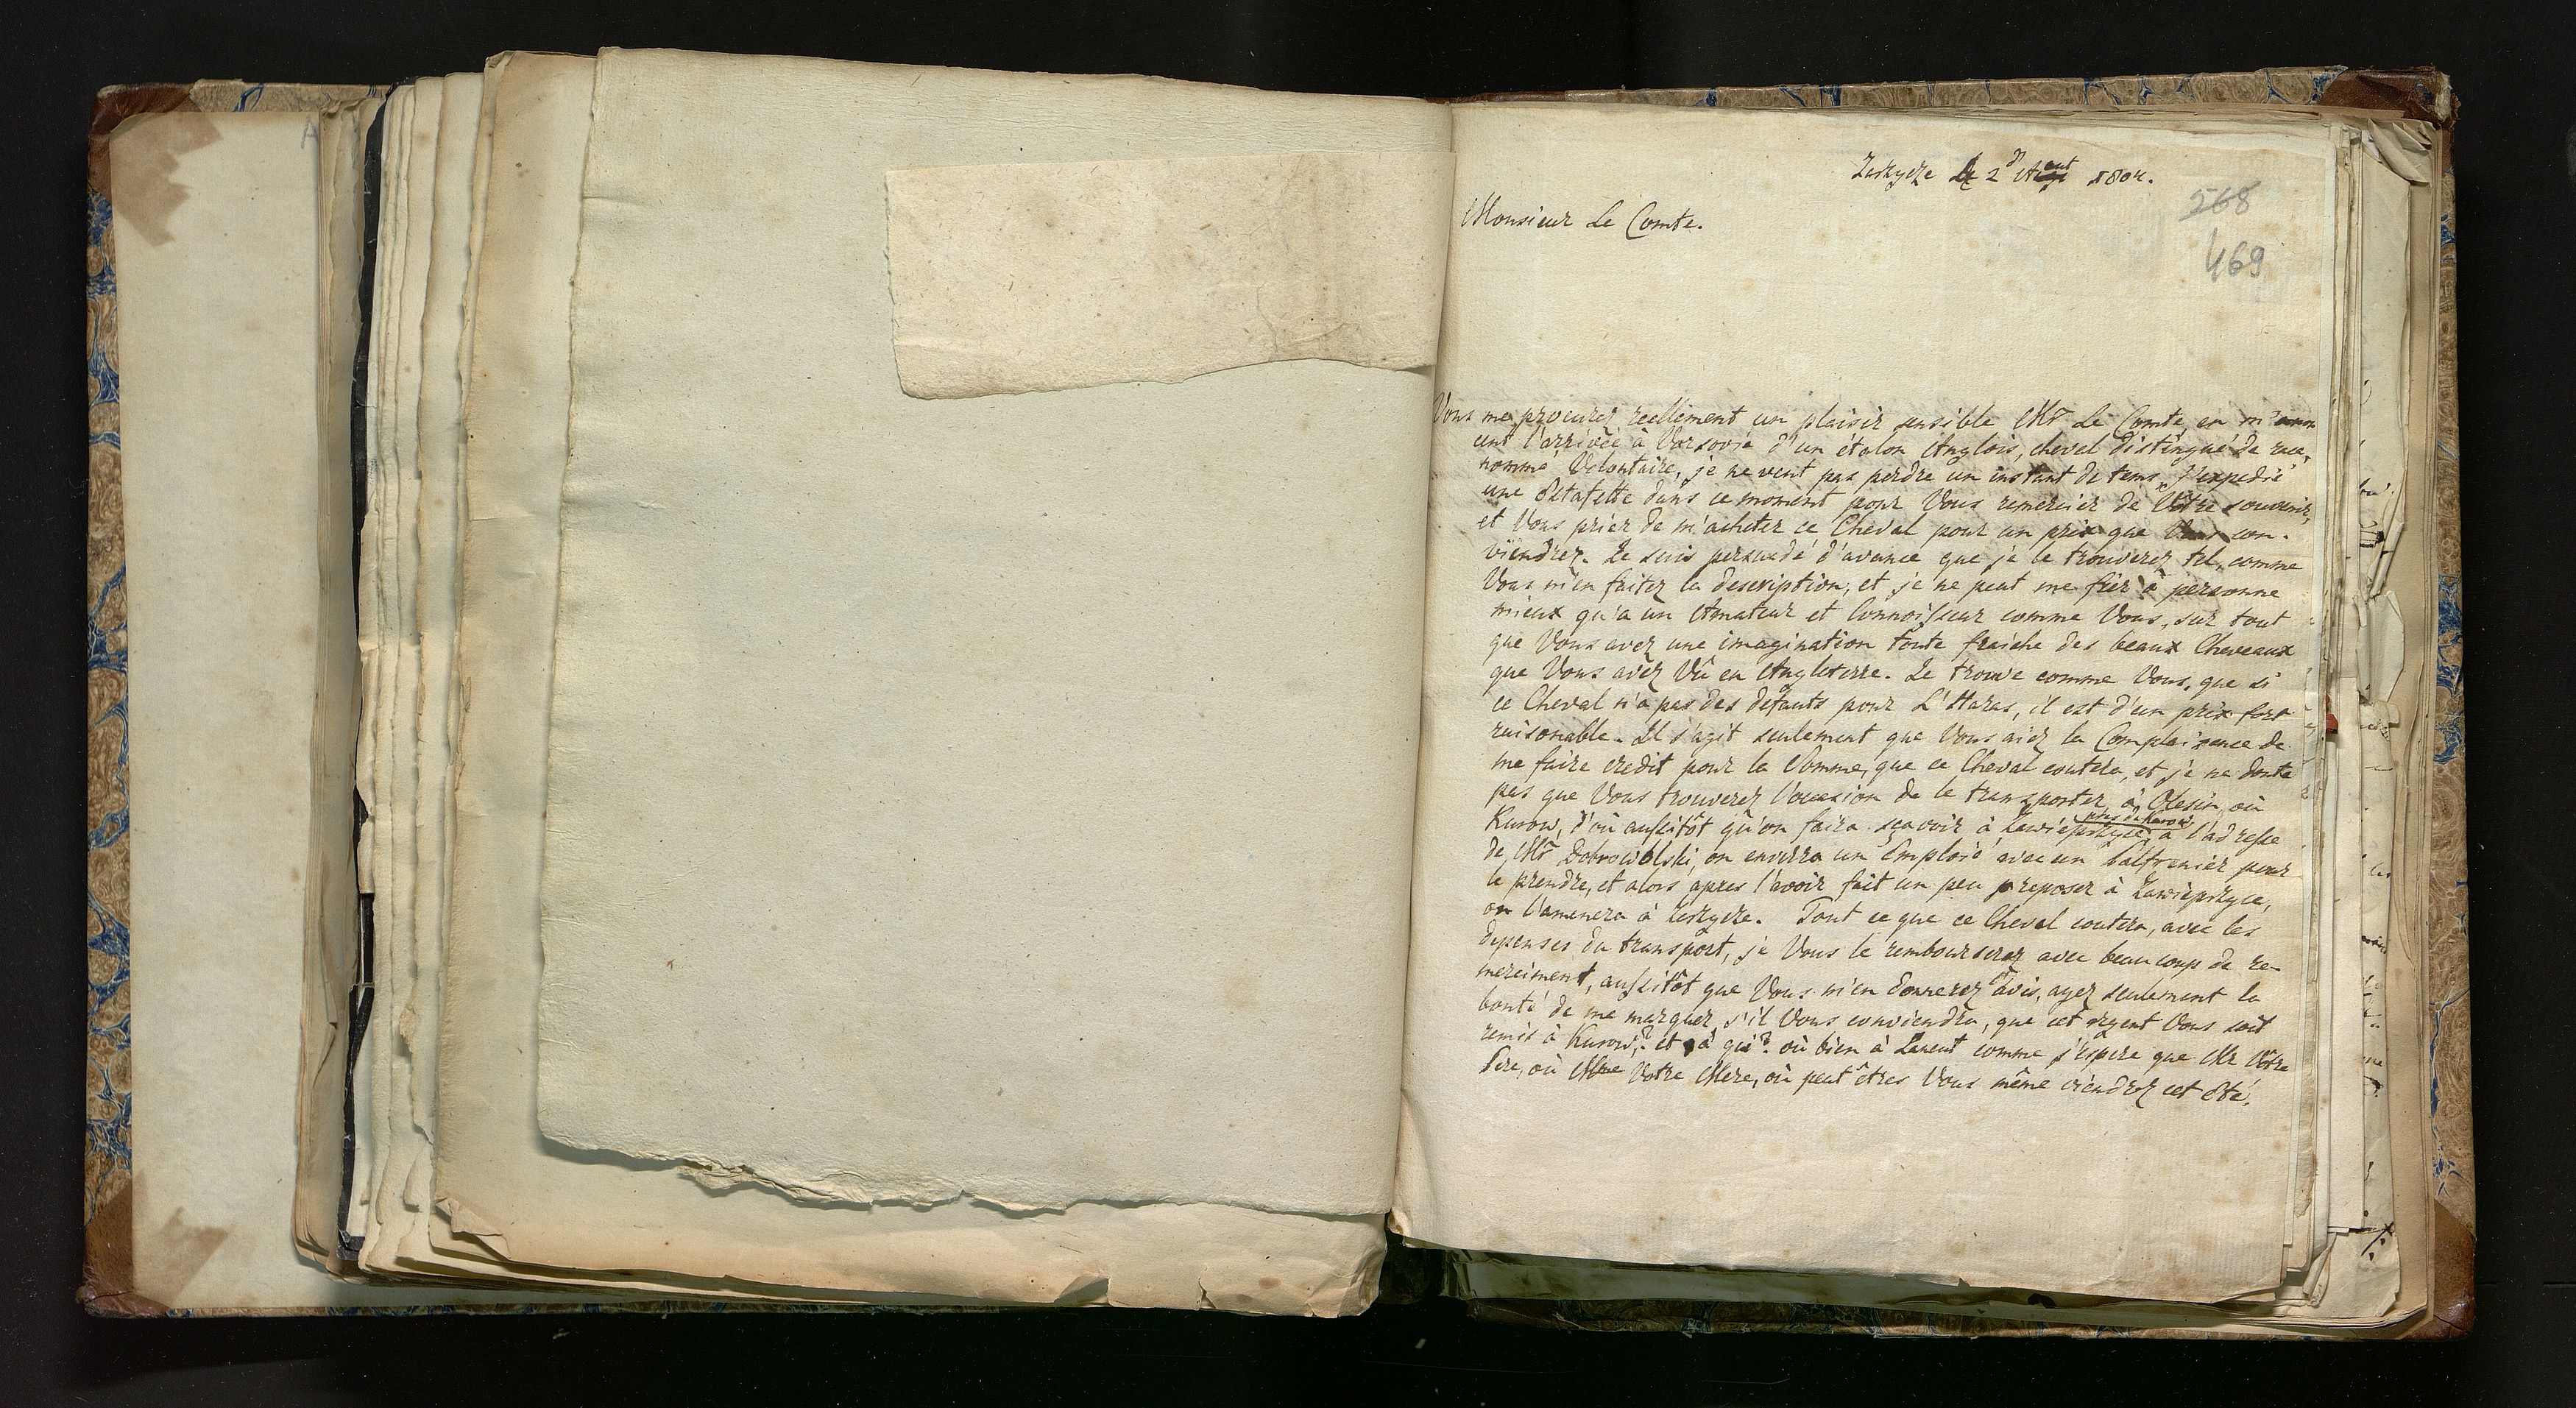 Zaskycze le 2d Aout 1804.
568
469
Monsieur Le Comte.
Vous me procurez reellement un plaisir sensible Mr Le Comte, en m'annon
cent l'arrivée à Varsovie d'un étalon Anglois, cheval distingué de race,
nommé Volontaire, je ne veut pas perdre un instant de tems, j'expedie
une Estafette dans ce moment pour Vous remercier de Vôtre souvenir,
et Vous prier de m'acheter ce Cheval pour un prix que Vous con-
viendrez. Je suis persuadé d'avance que je le trouverez tel, comme
Vous m'en faitez la description, et je ne peut me fier à personne
mieux qu'a un Amateur et Connoisseur comme Vous, sur tout
que Vous avez une imagination toute fraiche des beaux Cheveaux
que Vous avez Vû en Angleterre. Je trouve comme Vous, que si
ce Cheval n'a pas des defauts pour L'Haras, il est d'un prix fort
raisonable. Il s'agit seulement que Vous aiez la Complaisence de
me faire credit pour la Somme, que ce Cheval coutera, et je ne doute
pas que Vous trouverez l'occasion de le transporter à Olesin, où
Kurow, d'où aussitôt qu'on faira sçavoir à Zawieprzyce près de Kurow, à l'adresse
de Mr Dobrowolski, on enverra un Emploié avec un balfrenier pour
le prendre, et alors apres l'avoir fait un peu reposer à Zawieprzyce,
on l'amenera à Zaskycze. Tout ce que ce Cheval coutera, avec les
depenses du transport, je Vous le rembourserez avec beaucoup de re-
merciment, aussitôt que Vous m'en donnerez avis, ayez seulement la
bonté de me marquer, s'il Vous conviendra, que cet argent Vous soit
remis à Kurow? et à qui? où bien à Lancut comme j'espere que Mr Vôtre
Pere, où Mme Votre Mere, où peut êtres Vous même viendrez cet Eté.